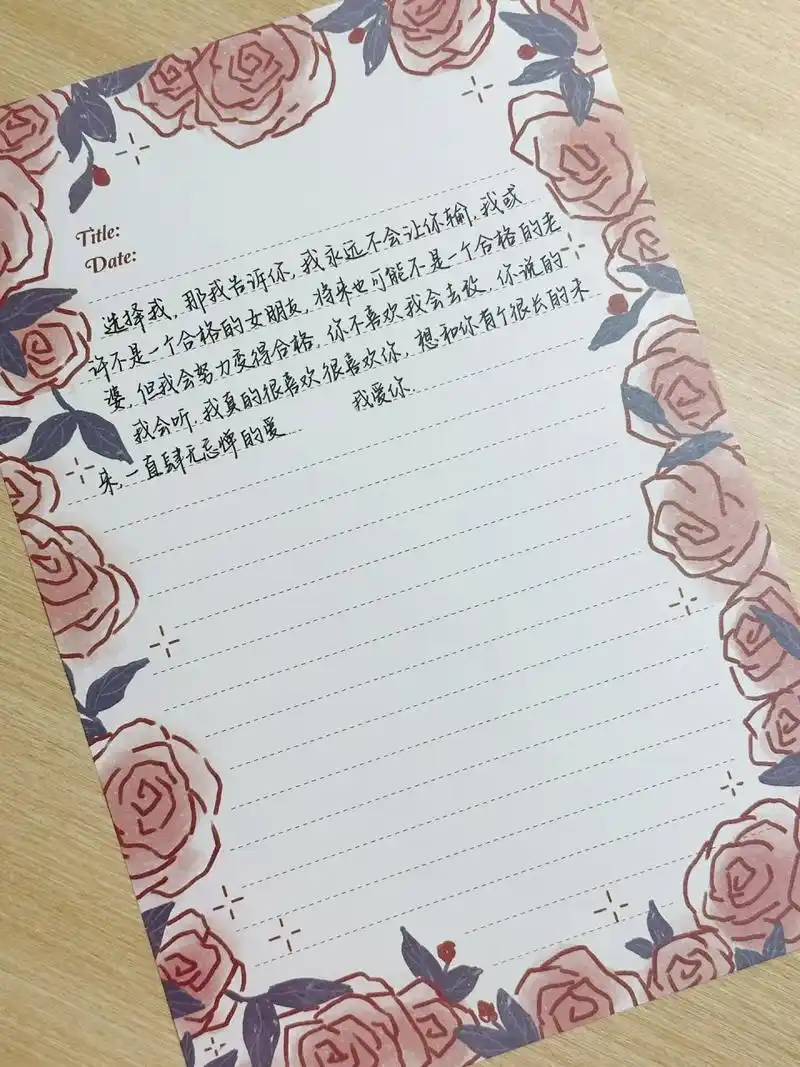 Title:
Date:
选择我,那我告诉你,我永远不会让你输,我或
许不是一个合格的女朋友,将来也可能不是一个合格的老
婆,但我会努力变得合格,你不喜欢我会去改,你说的
我会听,我真的很喜欢很喜欢你,想和你有个很长的未
来,一直肆无忌惮的爱... 我爱你.